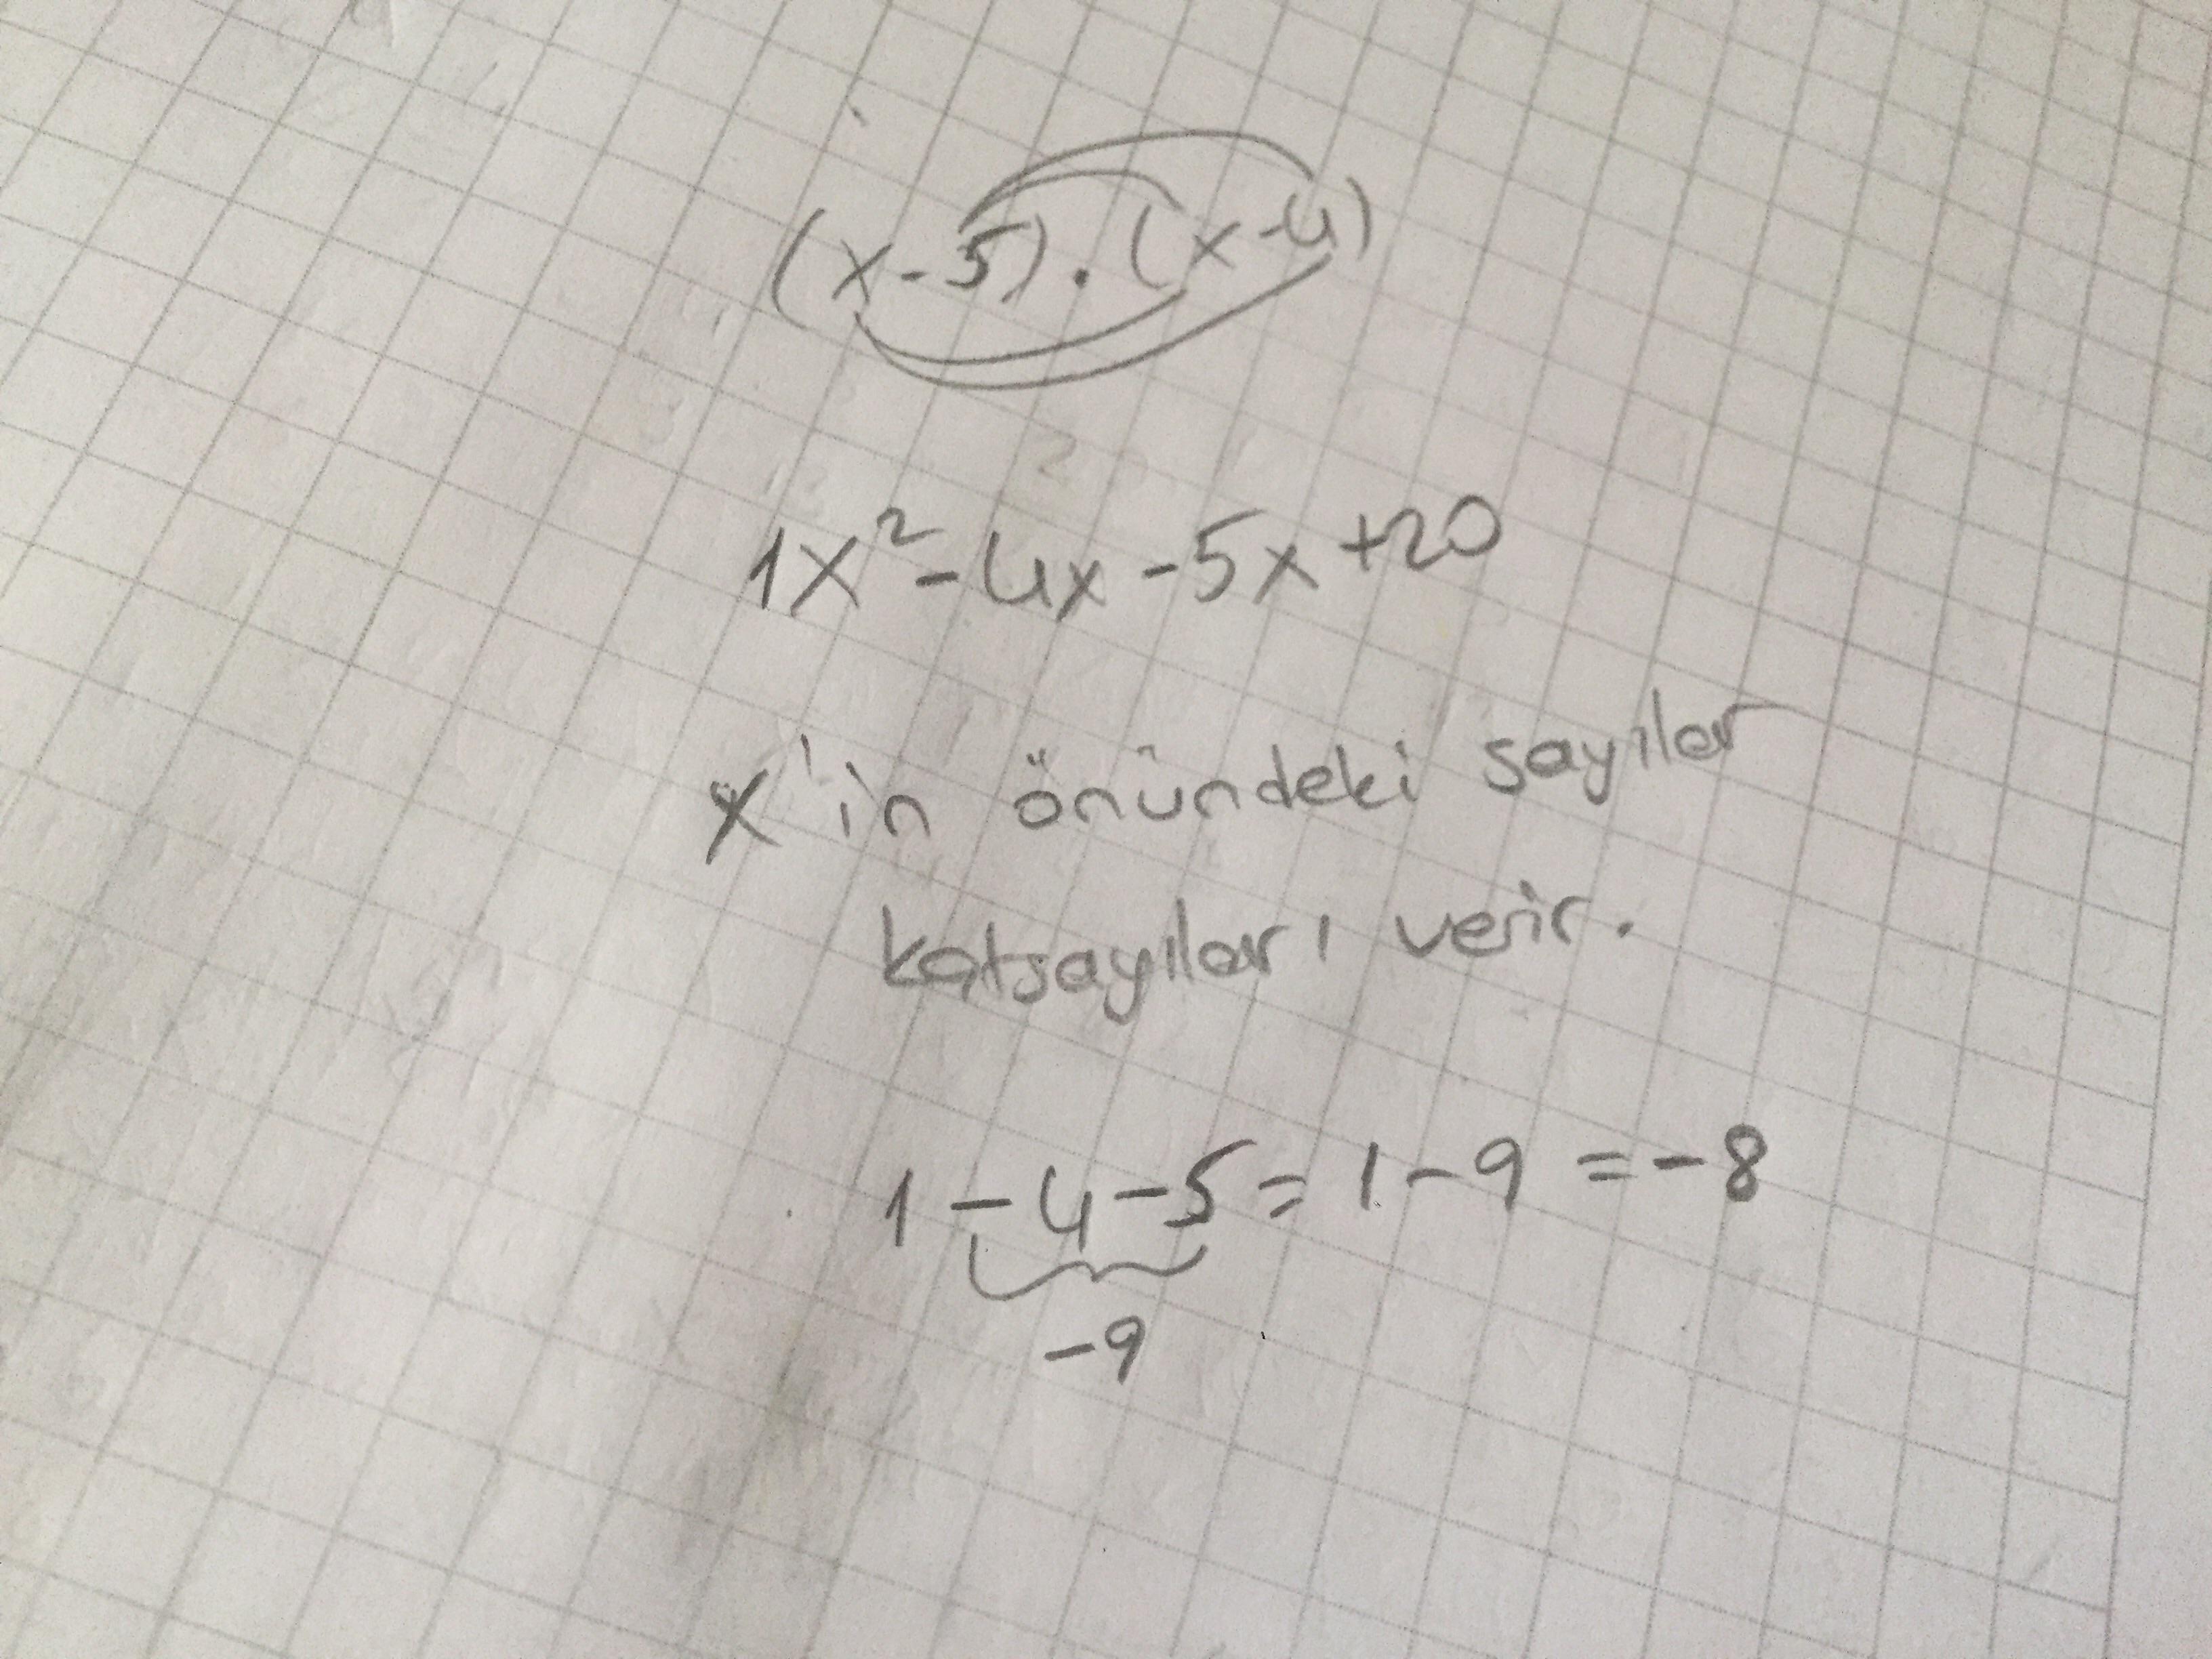 (x-5).(x-4)
1x²-4x-5x+20
x'in önündeki sayılar
katsayıları verir.
1-4-5=1-9=-8
-9